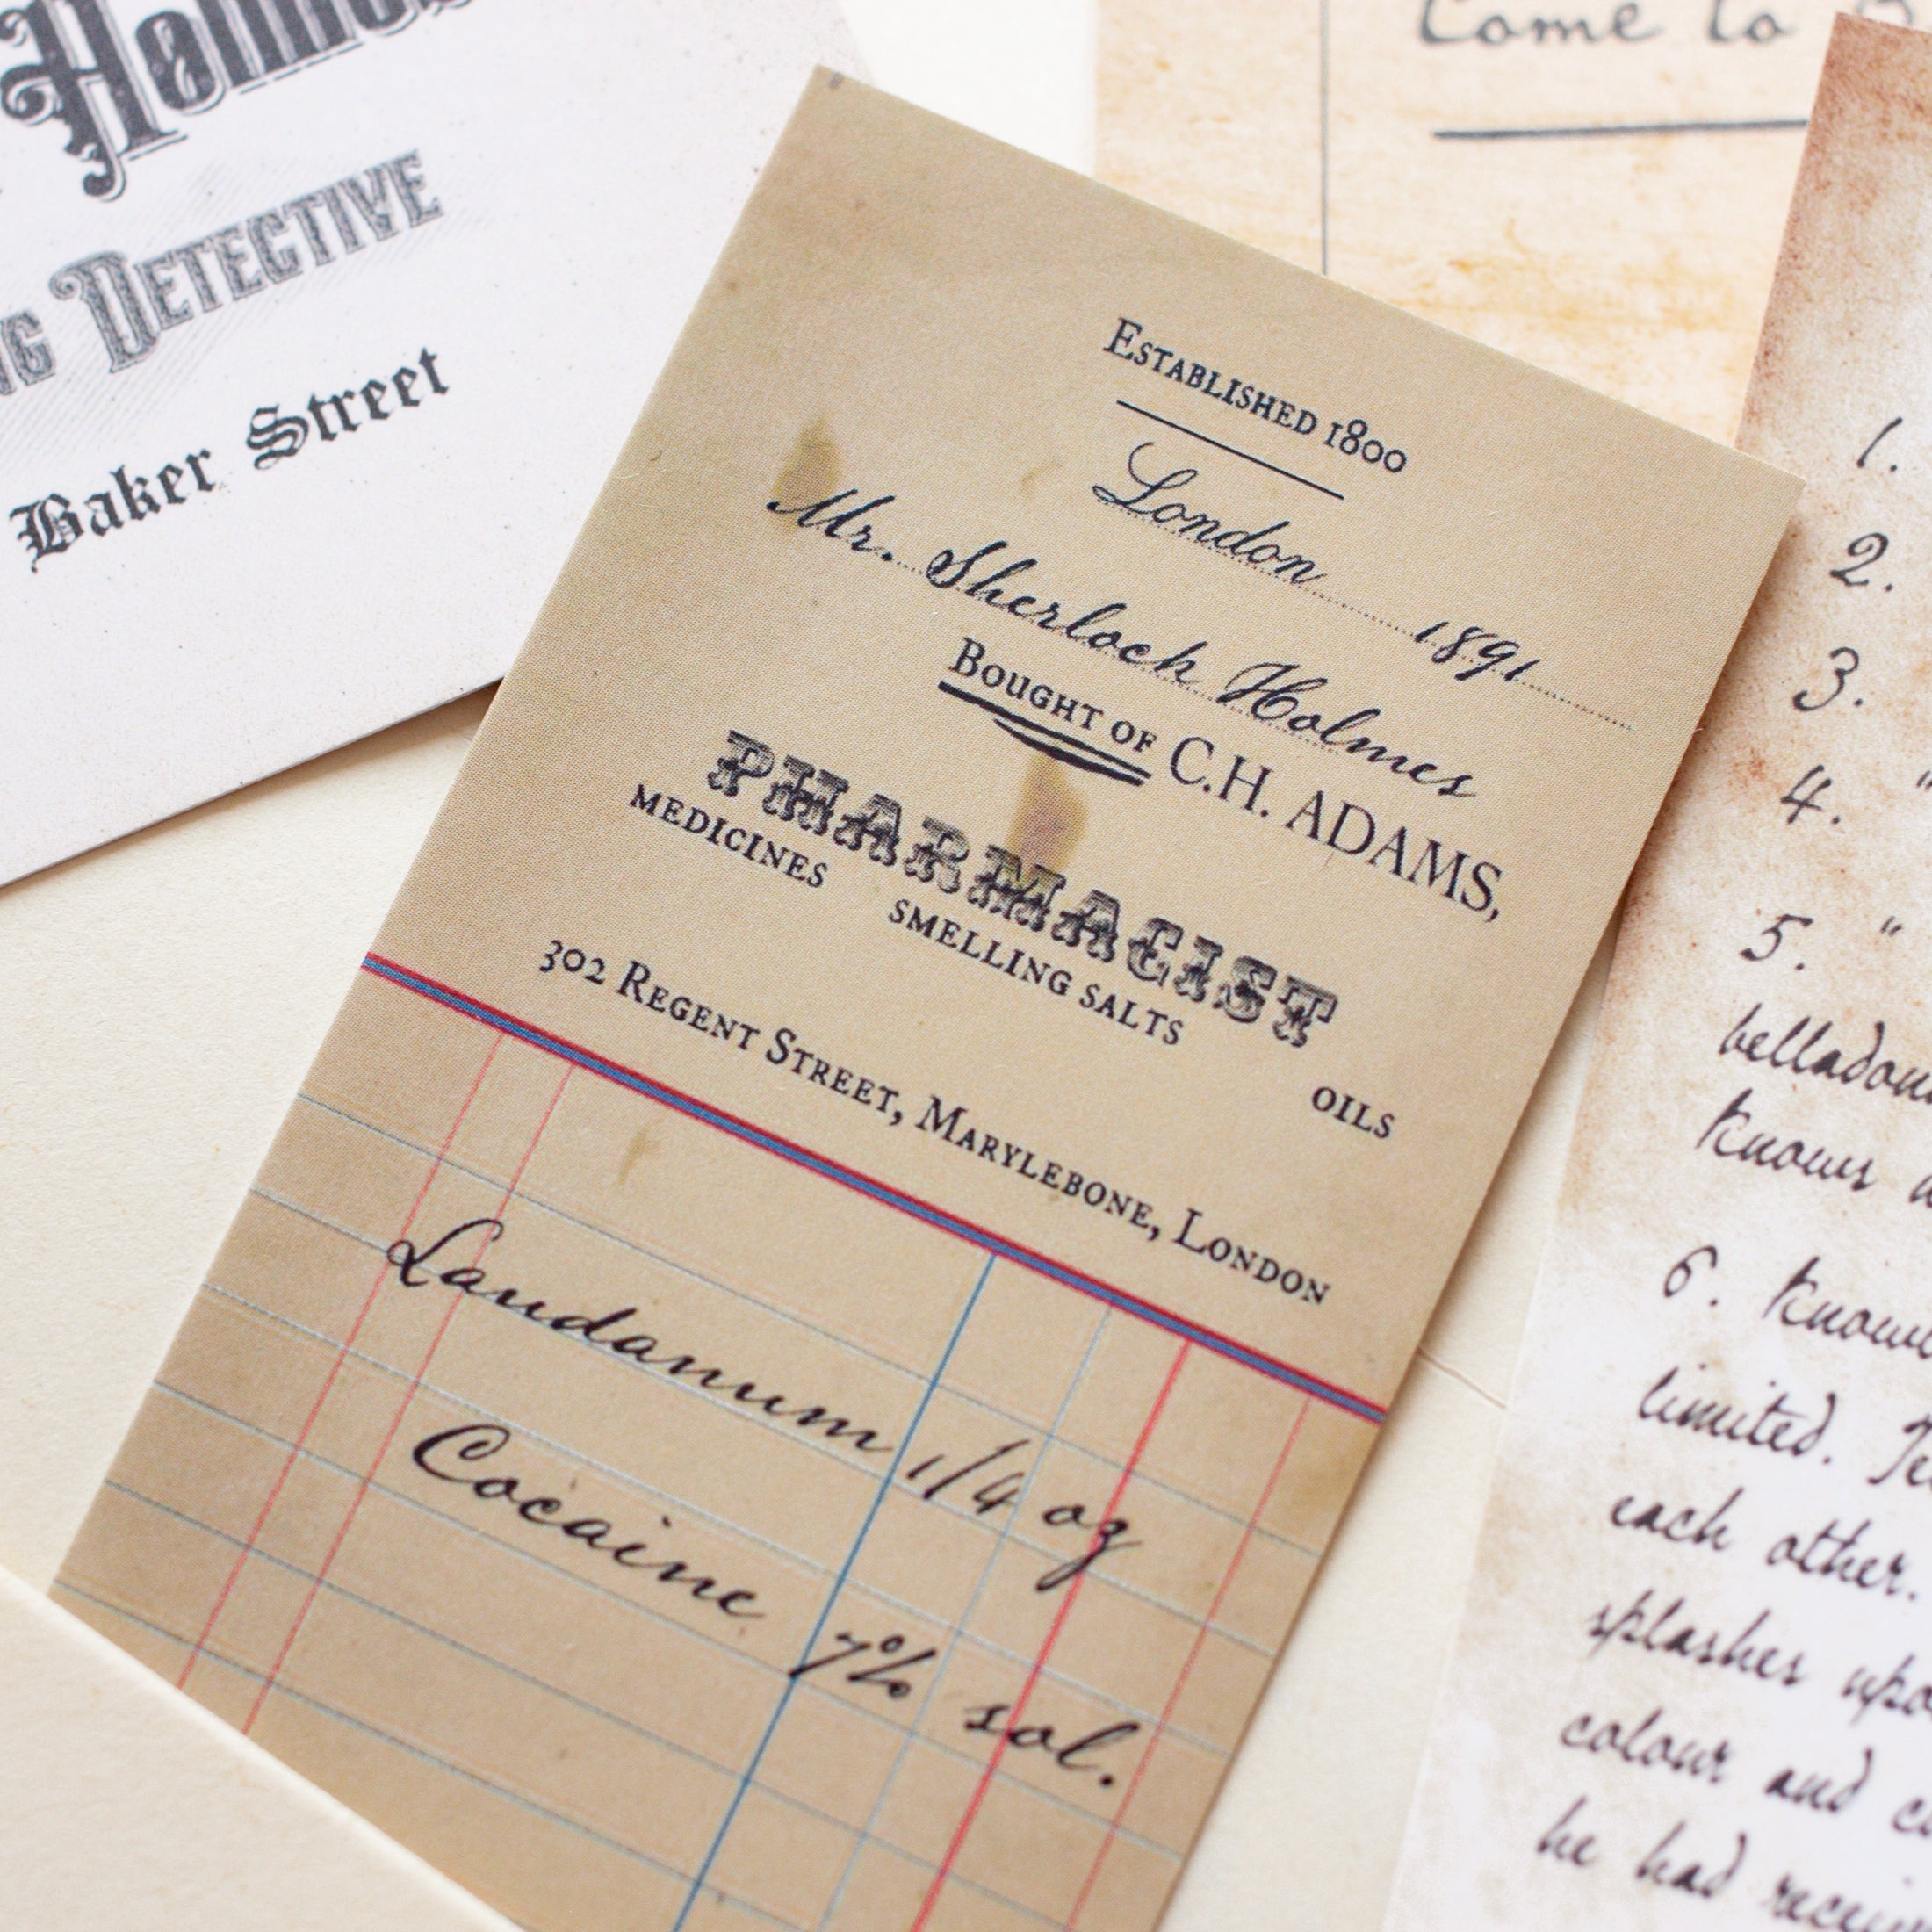 Detective
Baker Street
Come to
Established 1800
London 1891
Mr. Sherlock Holmes
Bought of C.H. ADAMS,
PHARMACIST
MEDICINES SMELLING SALTS OILS
302 Regent Street, Marylebone, London
Laudanum 1/4 oz
Cocaine 7% sol.
1.
2.
3.
4. "
5. "
knows
6. Knows
limited.
each other.
splashes
colour and
he had